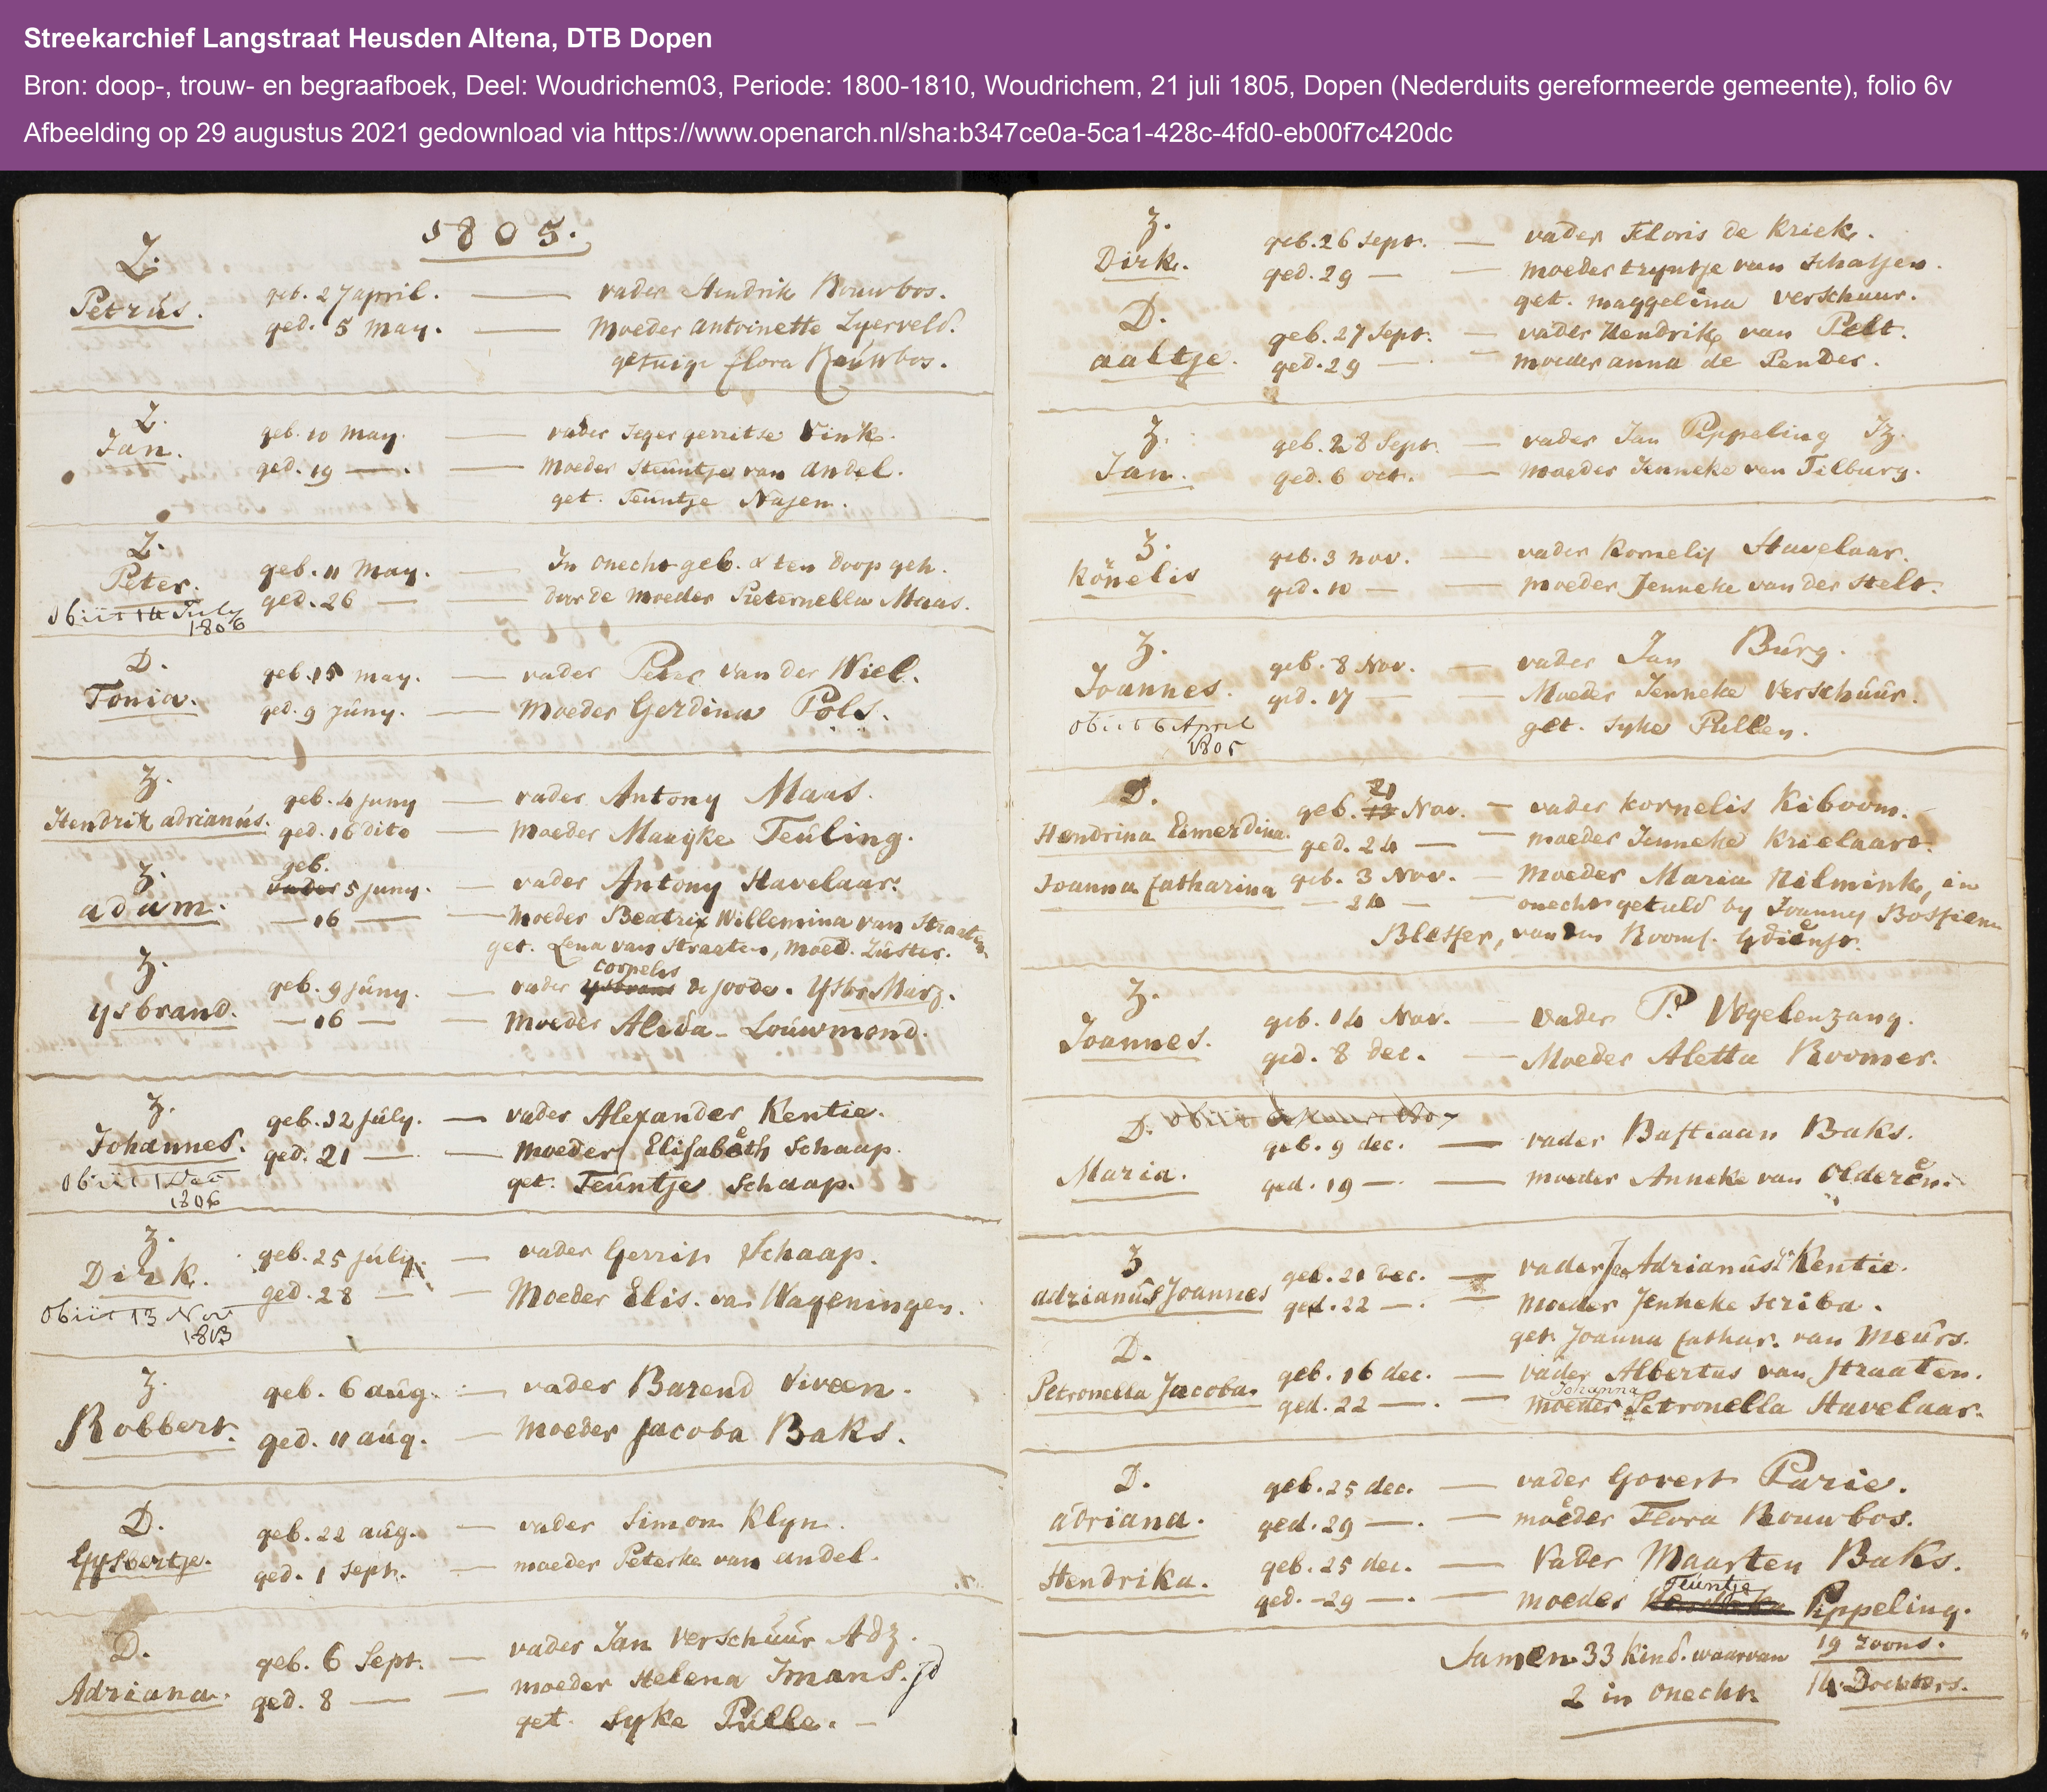 Streekarchief Langstraat Heusden Altena, DTB Dopen
Bron: doop-, trouw- en begraafboek, Deel: Woudrichem03, Periode: 1800-1810, Woudrichem, 21 juli 1805, Dopen (Nederduits gereformeerde gemeente), folio 6v
Afbeelding op 29 augustus 2021 gedownload via https://www.openarch.nl/sha:b347ce0a-5ca1-428c-4fd0-eb00f7c420dc
1805.
Z.
Petrus. geb. 27 april. — vader Hendrik Rouwbos.
ged. 5 May. — Moeder antoinette Zyerveld.
getuige flora Rouwbos.
Z.
Jan. geb. 10 May. — vader Seger gerritse Vink.
ged. 19 — . — Moeder Steuntje van andel.
get. Teuntje Nasen.
Z.
Peter. geb. 11 May. — In onecht geb. & ten doop geh.
ged. 26 — — door de Moeder Pieternella Maas.
Obiit 14 July
1806
D.
Tonia. geb. 15 may. — vader Peter van der Wiel.
ged. 9 Juny. — Moeder Gerdina Pols.
Z.
Hendrik adrianus. geb. 4 juny — vader Antony Maas.
ged. 16 dito — Moeder Maayke Teuling.
Z. geb.
adam. vader 5 juny. — vader Antony Havelaar.
— 16 — — Moeder Beatrix Willemina van Straaten.
get. Lena van Straaten, Moed. Zuster.
Z. cornelis
ysbrand. geb. 9 juny. — vader ysbrand de joode. Ysbr Marz.
— 16 — — Moeder Alida Louwmond.
Z.
Johannes. geb. 12 july. — vader Alexander Kentie.
ged. 21 — — Moeder Elisabeth Schaap.
get. Teuntje Schaap.
Obiit 1 Dec
1806
Z.
Dirk. geb. 25 july. — vader Gerrit Schaap.
ged. 28 — — Moeder Elis. van Wageningen.
Obiit 13 Nov
1813
Z.
Robbert. geb. 6 aug. — vader Barend Viveen.
ged. 11 aug. — Moeder Jacoba Baks.
D.
Gysbertje. geb. 22 aug. — vader Simon Klyn.
ged. 1 Sept. — moeder Peterke van andel.
D.
Adriana. geb. 6 Sept. — vader Jan Verschuur Adz.
ged. 8 — — moeder Helena Imans. Jd
get. Syke Pulle. —
Z.
Dirk. geb. 26 Sept. — vader Floris de Kriek.
ged. 29 — — Moeder tryntje van Schaijen.
get. Maggelina Verschuur.
D.
aaltje. geb. 27 Sept. — vader Hendrik van Pelt.
ged. 29 — — moeder anna de Pender.
Z.
Jan. geb. 28 Sept. — vader Jan Pippeling Jz.
ged. 6 oct. — Moeder Jenneke van Tilburg.
Z.
Kornelis geb. 3 nov. — vader Kornelis Havelaar.
ged. 10 — — moeder Jenneke van der Stelt.
Z.
Joannes. geb. 8 Nov. — vader Jan Burg.
ged. 17 — — Moeder Jenneke Verschuur.
get. Syke Pullen.
Obiit 6 April
1805
D. 21
Hendrina Eimerdina. geb. 12 Nov. — vader kornelis Kiboom.
ged. 24 — — moeder Jenneke Krielaart.
Joanna Catharina geb. 3 Nov. — Moeder Maria Nilmink, in
— 24 — — onecht getuld by Joanny Bossienn
Blesser, van den Rooms. Gdienst.
Z.
Joannes. geb. 14 Nov. — vader P. Vogelenzang.
ged. 8 dec. — Moeder Aletta Roomer.
D. Obiit 1807
Maria. geb. 9 dec. — vader Bastiaan Baks.
ged. 19 — . — moeder Anneke van Olderen.
Z
adrianus Joannes geb. 21 dec. — vader Jan Adrianus Kentie.
ged. 22 — . — Moeder Jenneke Scriba.
get. Joanna Cathar. van Meurs.
D.
Petronella Jacoba. geb. 16 dec. — vader Albertus van Straaten.
Johanna
ged. 22 — . — moeder Petronella Havelaar.
D.
adriana. geb. 25 dec. — vader Govert Parie.
ged. 29 — . — moeder Flora Rouwbos.
Hendrika. geb. 25 dec. — Vader Maarten Baks.
Teuntje
ged. 29 — . — moeder Pippeling.
Samen 33 kind. waarvan 19 zoons.
2 in onecht 14 Dochters.